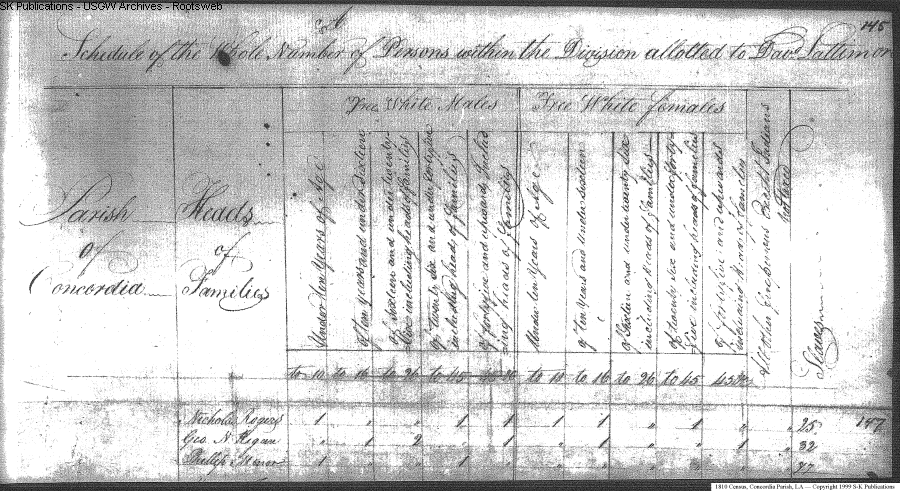 SK Publications - USGW Archives - Rootsweb
145
Schedule of the Whole Number of Persons within the Division allotted to Davd. Lattimor
Free White Males
Free White females
Parish of Concordia
Heads of Families
Under ten years of Age
Of ten years and under sixteen
Of sixteen and under twenty-six including heads of families
Of twenty six and under forty five including heads of families
Of forty five and upwards including heads of families
Under ten years of Age
of ten years and under sixteen
of Sixteen and under twenty six including heads of families
of twenty six and under forty five including heads of families
of forty five and upwards including heads of families
All other free persons except Indians not taxed
Slaves
to 10 to 16 to 26 to 45 45 &c to 10 to 16 to 26 to 45 45 &c
Nicholas Rogers 1 " " 1 1 1 1 " 1 " " 25 147
Geo. N. Regan " 1 2 " 1 " 1 " " 1 " 32
Phillip Minor 1 " " 1
1810 Census, Concordia Parish, LA — Copyright 1999 S-K Publications